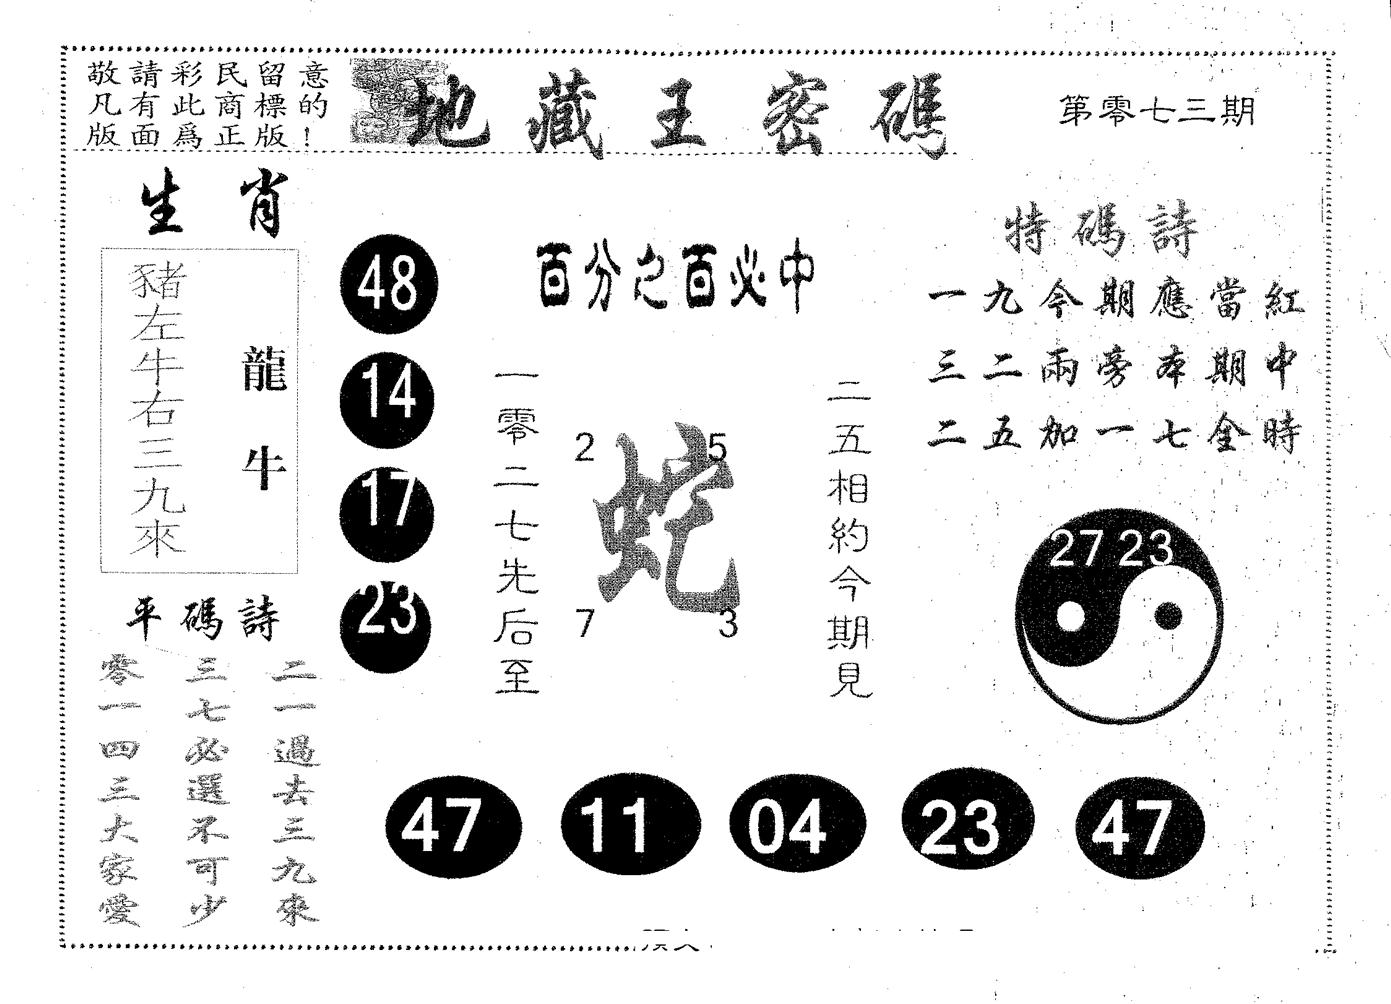 敬請彩民留意
凡有此商標的
版面爲正版！
地藏王密碼
第零七三期
生肖
豬左牛右三九來
龍牛
平碼詩
二一過去三九來
三七必選不可少
零一四三大家愛
48
14
17
23
百分之百必中
一零二七先后至
2 5
蛇
7 3
二五相約今期見
特碼詩
一九今期應當紅
三二兩旁本期中
二五加一七全時
27 23
47 11 04 23 47